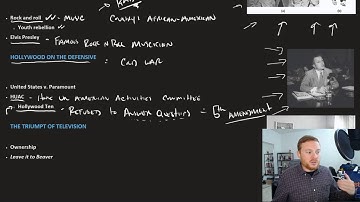 Rock and roll - MUSIC COUNTRY AFRICAN-AMERICAN
Youth rebellion
Elvis Presley - FAMOUS ROCK N ROLL MUSICIAN
HOLLYWOOD ON THE DEFENSIVE = COLD WAR
United States v. Paramount
HUAC - HOUSE UN AMERICAN ACTIVITIES COMMITTEE
Hollywood Ten - REFUSED TO ANSWER QUESTIONS = 5th AMENDMENT
THE TRIUMPT OF TELEVISION
Ownership
Leave it to Beaver